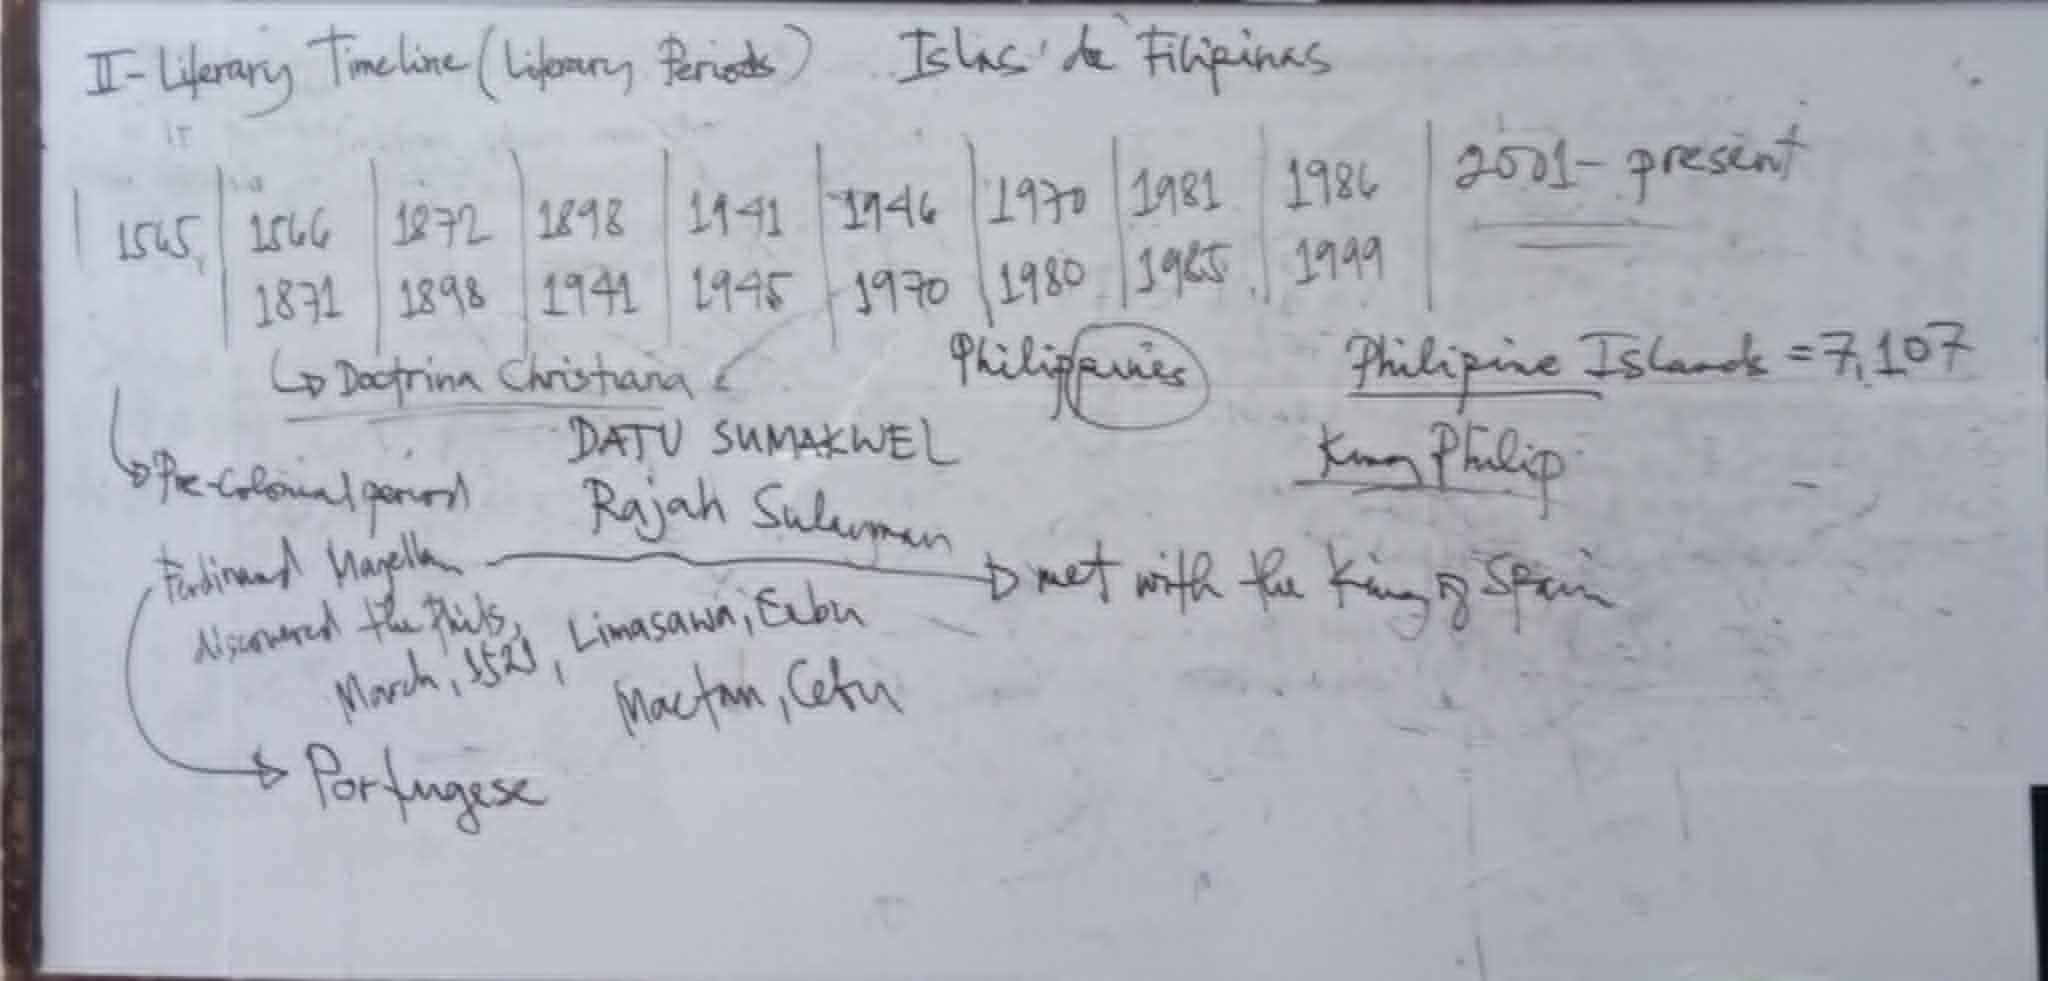 II- Literary Timeline (Literary Periods) Islas de Filipinas
1565 1566 1872 1898 1941 1946 1970 1981 1986 2001- present
1871 1898 1941 1945 1970 1980 1985 1999
Doctrina Christiana Philippines Philipine Islands = 7,107
DATU SUMAKWEL King Philip
Pre-colonial period Rajah Suleyman
Ferdinand Magellan met with the King of Spain
discovered the Phils,
March, 1521, Limasawa, Cebu
Mactan, Cebu
Portugese